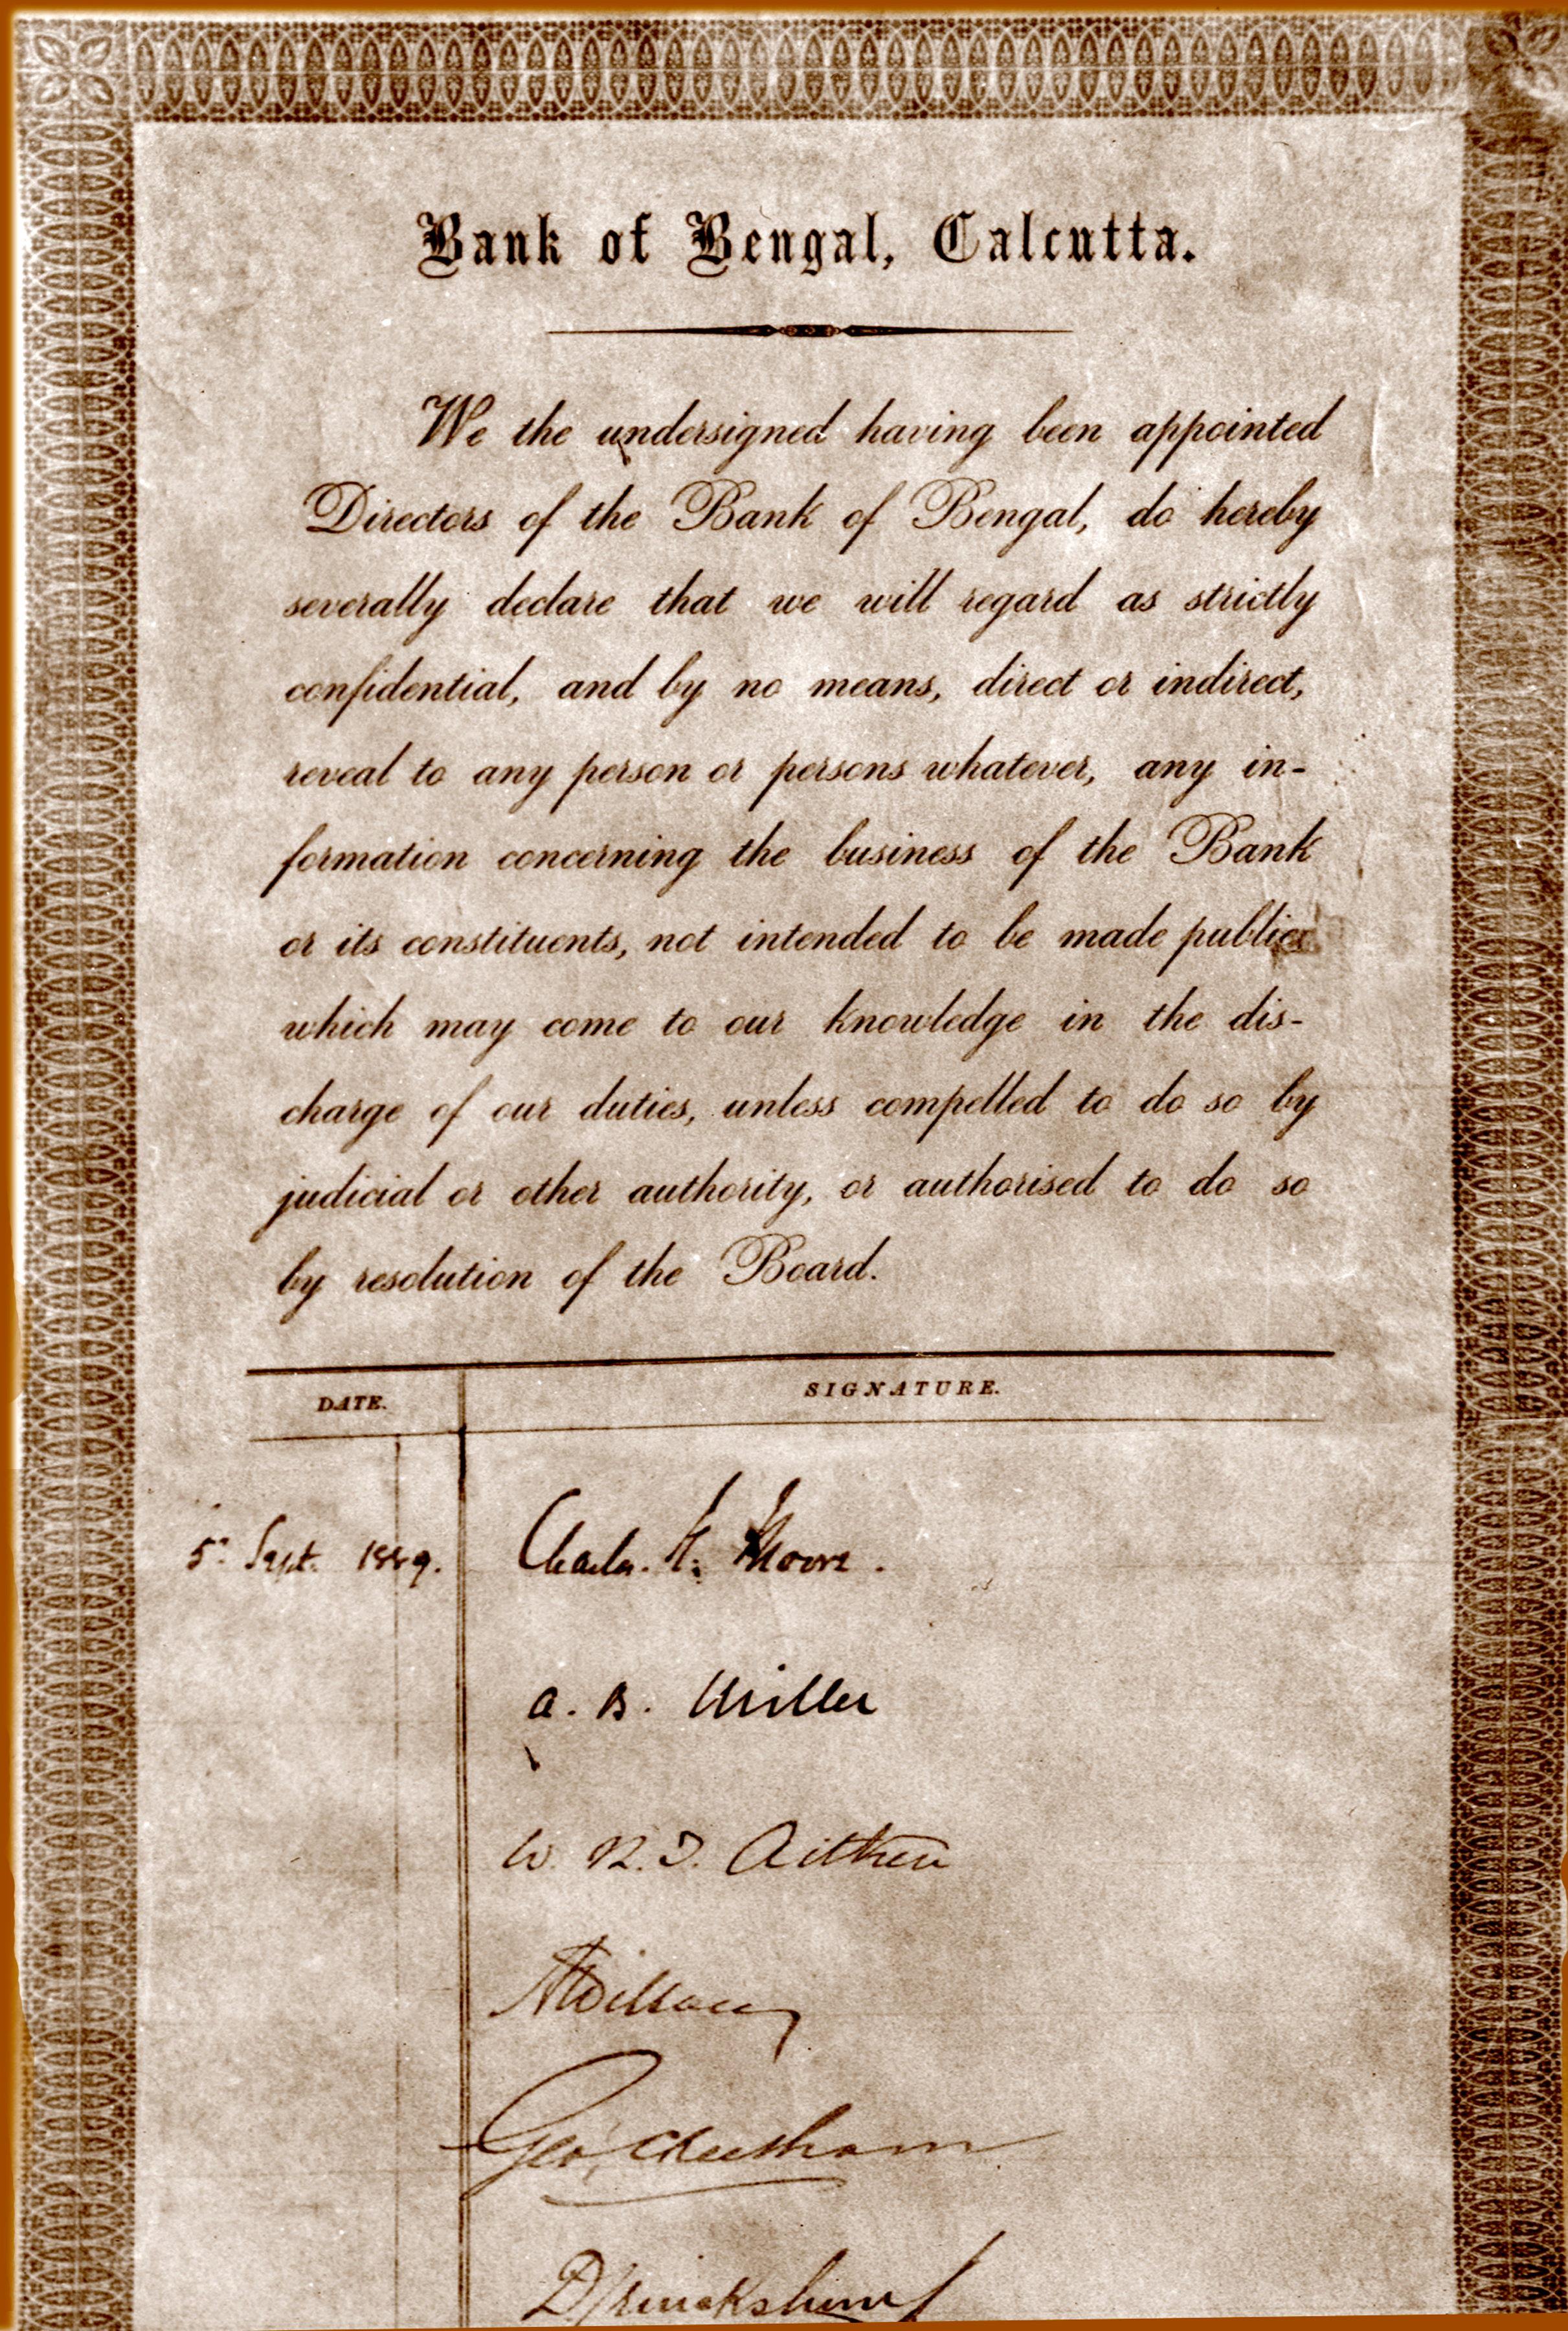 Bank of Bengal, Calcutta.
We the undersigned having been appointed
Directors of the Bank of Bengal, do hereby
severally declare that we will regard as strictly
confidential, and by no means, direct or indirect,
reveal to any person or persons whatever, any in-
formation concerning the business of the Bank
or its constituents, not intended to be made public,
which may come to our knowledge in the dis-
charge of our duties, unless compelled to do so by
judicial or other authority, or authorised to do so
by resolution of the Board.
DATE. SIGNATURE.
5. Sept. 1889. Charles. H. Moore.
A. B. Miller
W. R. J. Aitken
Geo,